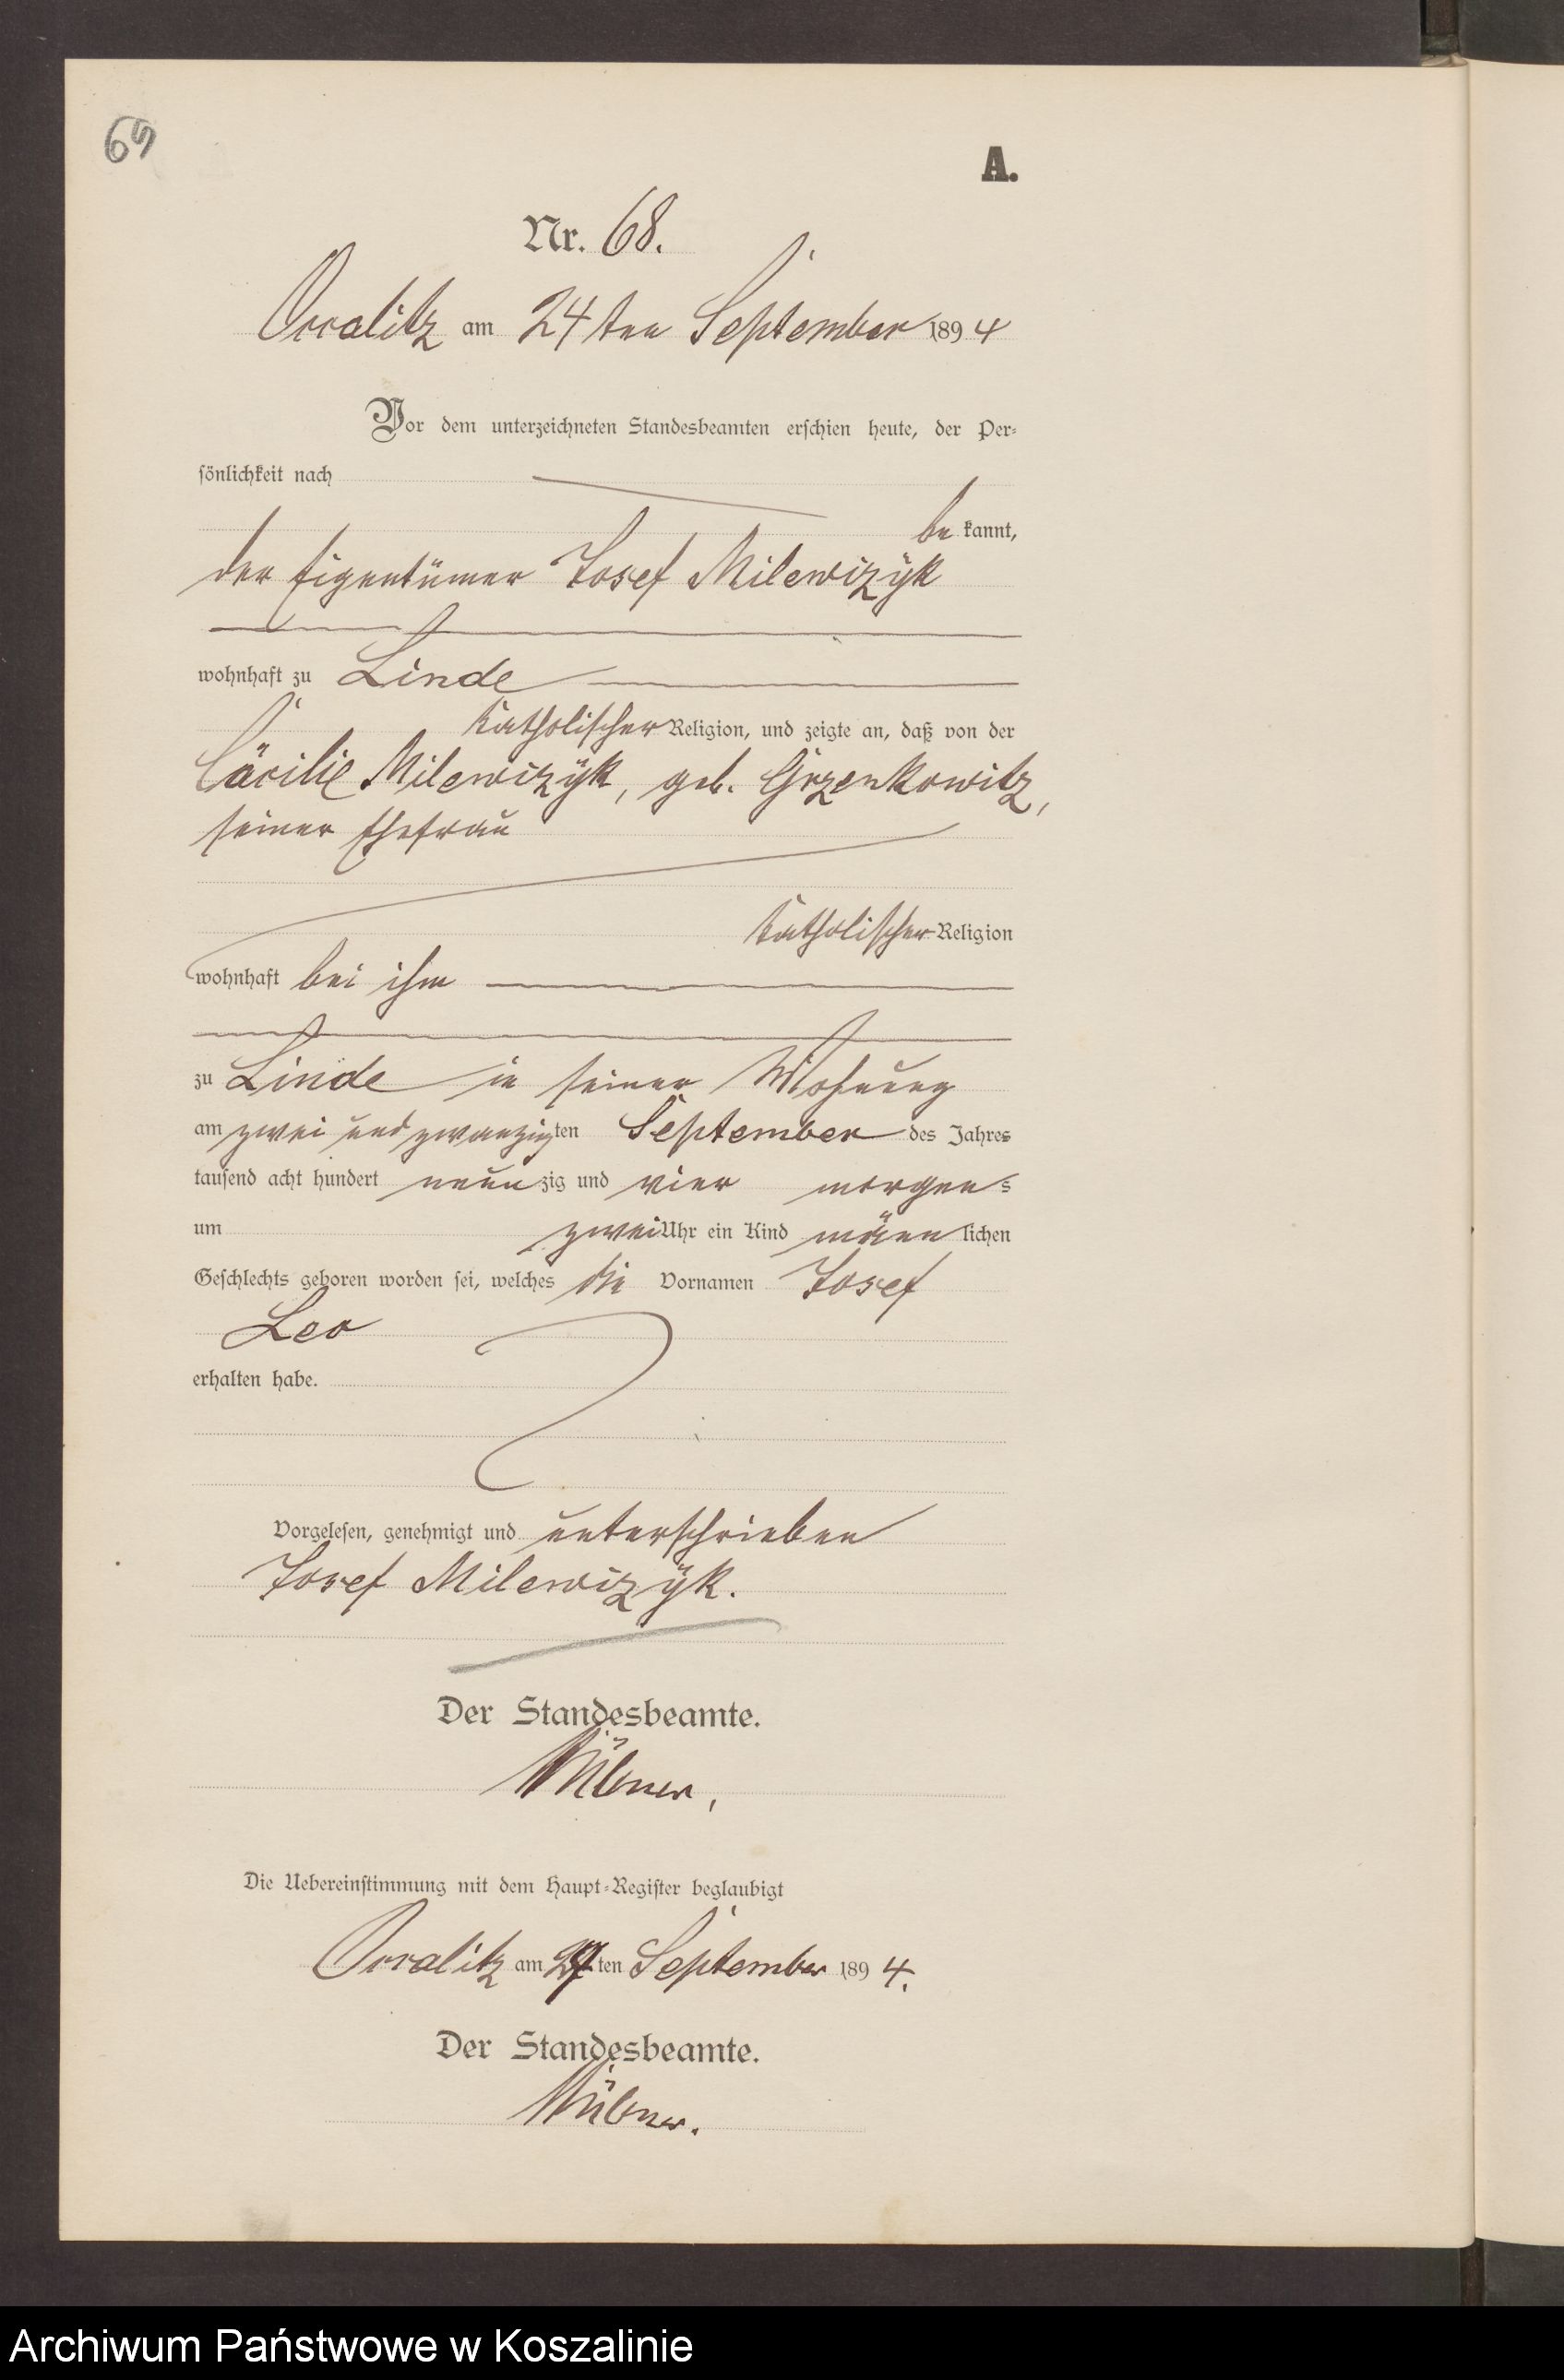 69
A.
Nr. 68.
am 24ten September 1894
Vor dem unterzeichneten Standesbeamten erschien heute, der Per-
sönlichkeit nach
be kannt,
der Eigentümer Josef Milewizÿk
wohnhaft zu Linde
katholischer Religion, und zeigte an, daß von der
Cäcilie Milewizÿk, geb. Grzenkowitz,
seiner Ehefrau
katholischer Religion
wohnhaft bei ihm
zu Linde in seiner Wohnung
am zwei und zwanzigten September des Jahres
tausend acht hundert neunzig und vier morgens
um zwei Uhr ein Kind männlichen
Geschlechts geboren worden sei, welches die Vornamen Josef
Leo
erhalten habe.
Vorgelesen, genehmigt und unterschrieben
Josef Milewizÿk.
Der Standesbeamte.
Die Uebereinstimmung mit dem Haupt-Register beglaubigt
am ten September 1894.
Der Standesbeamte.
Archiwum Państwowe w Koszalinie